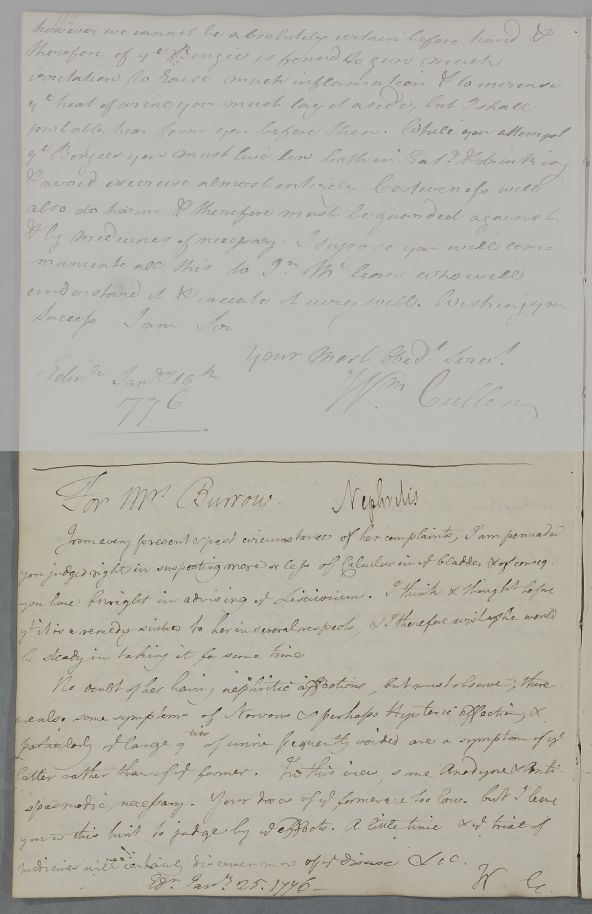 however we cannot be absolutely certain before hand &
therefore if ye Bougie is found to give much
irritation to raise much inflamation & to increase
ye heat of urine you must lay it aside, but I shall
probably hear from you before then. While you attempt
ye Bougies you must live low both in Eatg & drinking
& avoid exercise almost entirely Costiveness will
also do harm & therefore must be guarded against
& by medicines if necessary. I supose you will com=
municate all this to Jn Mc lean who will
understand it & execute it very well. Wishing you
Success I am Sir
your most Obedt Servt.
Edinr Jany 16th
1776
Wm Cullen
For Mrs Burrow. Nephritis
From every present & past circumstances of her complaints, I am persuaded
you judged right in suspecting more or less of Calculus in ye bladder & of conseq.
you have bt right in advising ye Lixivium. I think & thought before
yt it is a remedy suited to her in several respects, & I therefore wish she would
be steady in taking it for some time
No doubt of her having nephritic affections, but must observe, there
are also some symptoms of Nervous & perhaps Hysteric affection, &
particularly ye large qties of urine frequently voided are a symptom of ye
latter rather than of ye former. In this view, some Anodyne & Anti-
spasmodic, necessary. Your doses of ye former are too low. but I leave
you in this hint to judge by ye effects. A little time & ye trial of
medicines will certainly discover more of ye disease &c.
Edr. Jany. 25. 1776- W. C.